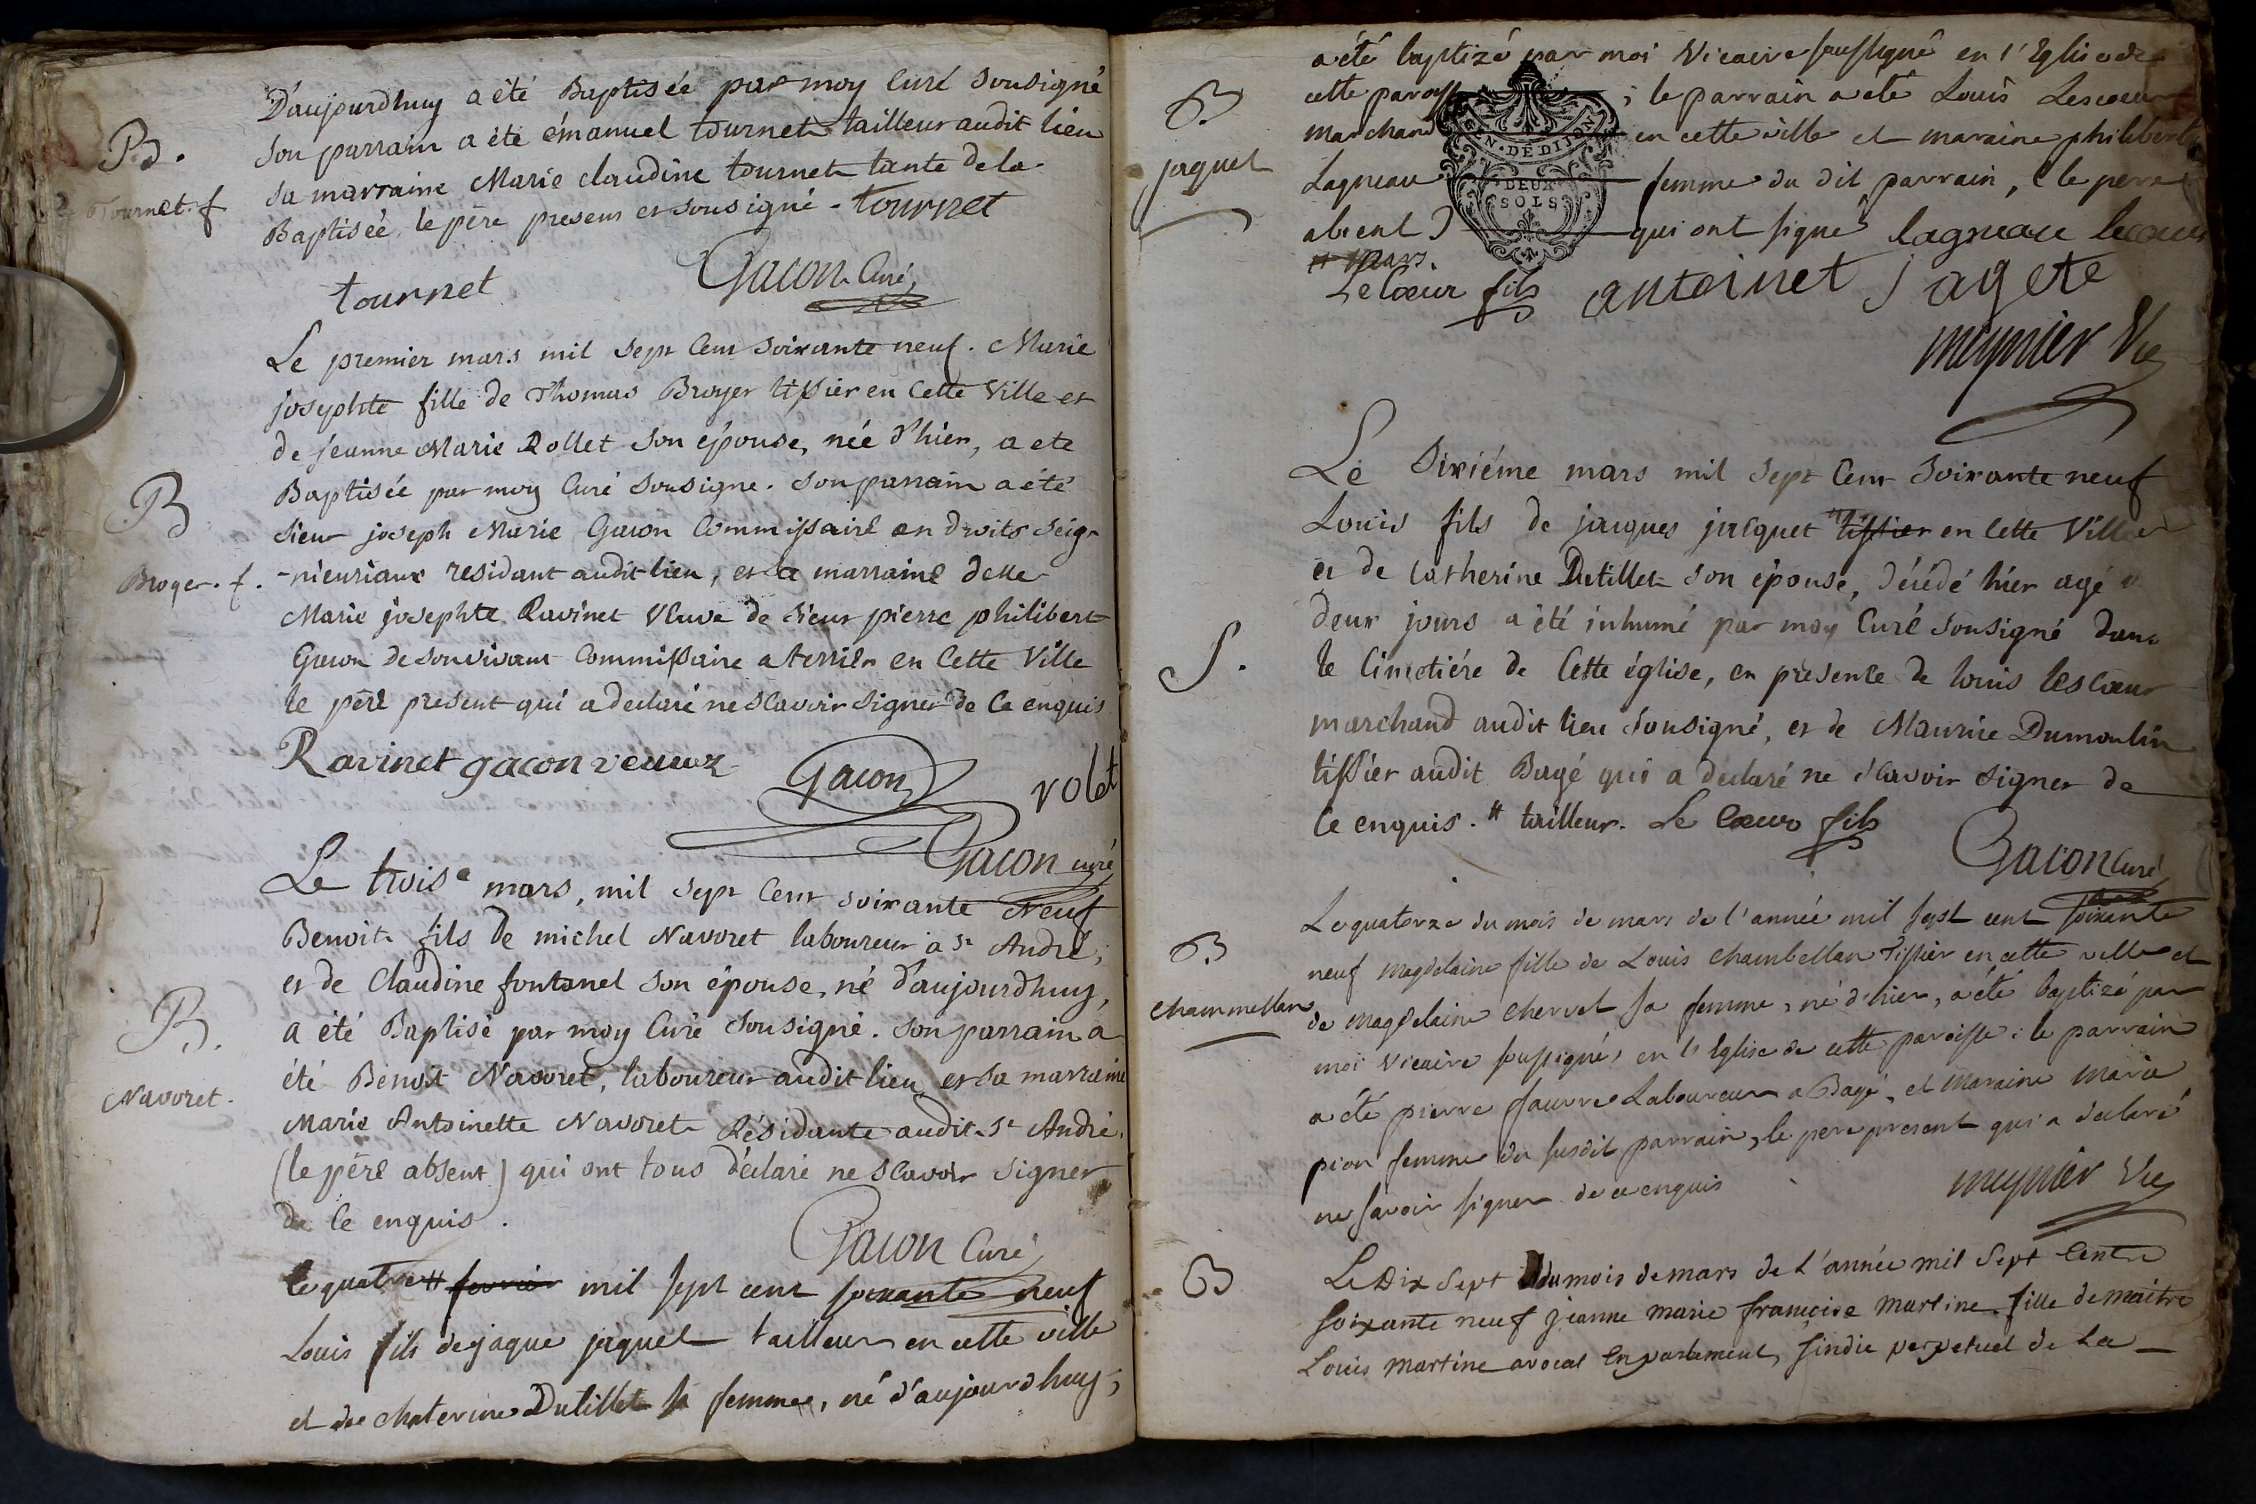 D'aujourdhuy a été Baptisée par moy Curé sousigné
B.
son parrain a été émanuel tournet tailleur audit lieu
sa marraine Marie claudine tournet tante de la
Tournet. f
Baptisée, le pere present et sousigné - tournet
tournet
Gacon Curé
Le premier mars mil sept cent soixante neuf. Marie
josephte fille de Thomas Broyer tissier en cette Ville et
de jeanne Marie Rollet son épouse, née d'hier, a ete
B
Baptisée par moy Curé sousigne. son parrain a été
sieur joseph Marie Gacon Commissaire en droits seig-
Broyer. f.
-nieuriaux residant audit lieu, et la marraine delle
Marie josephte Ravinet Veuve de sieur pierre philibert
Gacon de son vivant Commissaire a terrier en cette Ville
le pére present qui a declaré ne sçavoir signer de ce enquis
Ravinet gacon veuve
Gacon
volet
Gacon curé
Le trois e mars, mil sept cent soixante Neuf
Benoit fils de michel Navoret laboureur a St André,
et de Claudine fontanel son épouse, né d'aujourdhuy,
B.
a été Baptisé par moy Curé sousigné. son parrain a
été Benoit Navoret, laboureur audit lieu et sa marraine
Navoret.
Marie Antoinette Navoret Résidante audit St André,
(le pére absent) qui ont tous déclaré ne sçavoir signer
de ce enquis.
Gacon Curé
le quatre # fevrier mil sept cent soixante neuf
Louis fils de jaque jaquet tailleur en cette ville
et de chaterine Dutillet sa femme, né d'aujourdhuy;
a été baptizé par moi Vicaire soussigné en l'Eglise de
B.
cette paroisse ; le parrain a été Louis Lescoeur
marchand en cette ville et maraine philiberte
jaquet
Lagneau femme du dit parrain, (le pere
absent) qui ont signé lagneau lecoeur
GEN. DE DIJON
DEUX
SOLS
# mars.
Le Coeur fils antoinet jagete
meynier Vic
Le sixiéme mars mil sept cent soixante neuf
Louis fils de jacques jacquet # tissier en cette Ville
et de Catherine Dutillet son épouse, décédé hier agé
deux jours a été inhumé par moy Curé sousigné dans
S.
le cimetiére de cette église, en presence de louis lescoeur
marchand audit lieu sousigné, et de Maurice Dumoulin
tissier audit Bagé qui a declaré ne sçavoir signer de
ce enquis. # tailleur. Le Coeur fils
Gacon Curé
Le quatorze du mois de mars de l'année mil sept cent soixante
B
neuf magdelaine fille de Louis chambellan Tissier en cette ville et
chammellan
de magdelaine chervet sa femme, né d'hier, a été baptizé par
moi vicaire soussigné, en l'Eglise de cette paroisse : le parrain
a été pierre faurre Laboureur a Bagé, et maraine marie
pion femme du susdit parrain, le pere present qui a declaré
ne savoir signer de ce enquis
meynier Vic
B
Le Dix sept du mois de mars de l'année mil sept cent
soixante neuf jeanne marie françoise martine fille de maitre
Louis martine avocat en parlement, sindic perpetuel de La